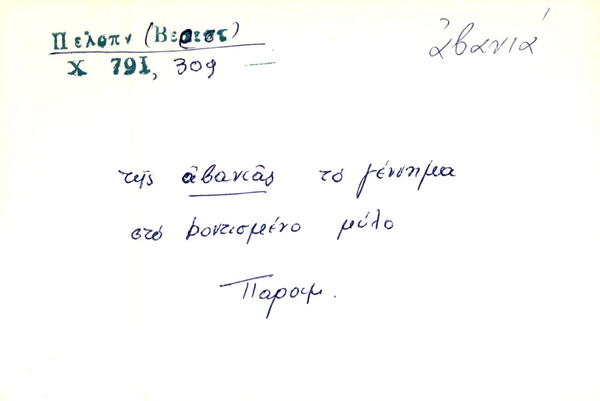 Πελοπν (Βερεστ) ἀβανιά
Χ 791, 309
τῆς ἀβανιᾶς τὸ γέννημα
στὸ ῥοντισμένο μύλο
Παροιμ.